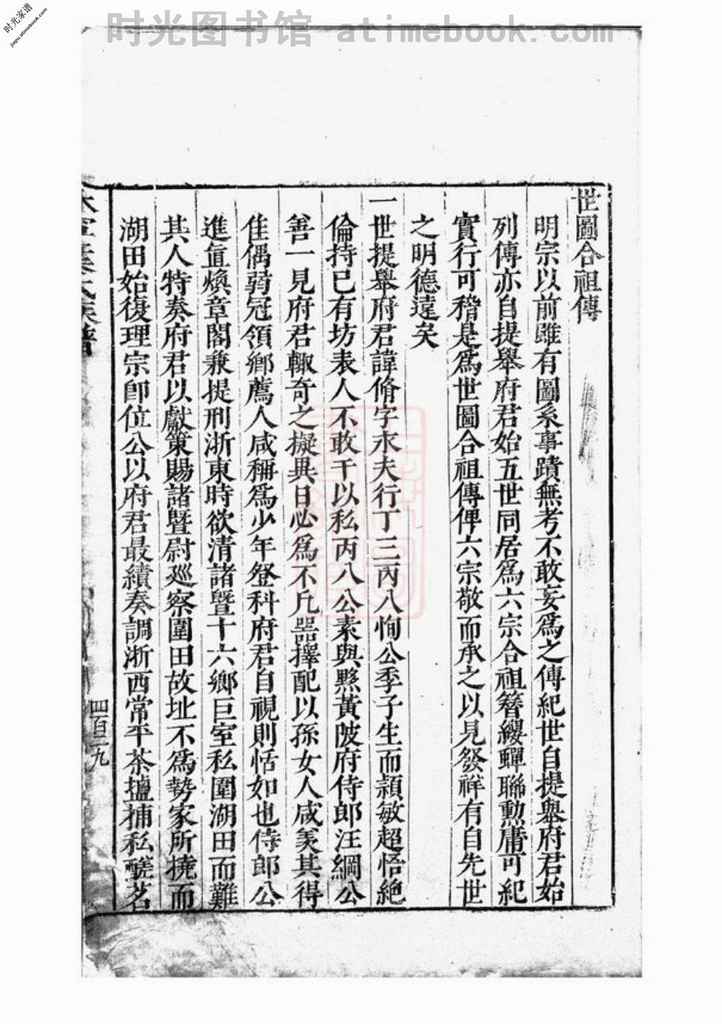 时光图书馆 atimebook.com
时光家谱
jiapu.atimebook.com
世圖合祖傳
明宗以前雖有圖系事蹟無考不敢妄爲之傳紀世自提舉府君始
列傳亦自提舉府君始五世同居爲六宗合祖簪纓蟬聯勲庸可紀
實行可稽是爲世圖合祖傳俾六宗敬而承之以見發祥有自先世
之明德遠矣
一世提舉府君諱脩字永夫行丁三丙八恂公季子生而頴敏超悟絶
倫持已有坊表人不敢干以私丙八公素與黟黃陂府侍郎汪綱公
善一見府君輙奇之擬異日必爲不凢器擇配以孫女人咸羙其得
佳偶弱冠領鄉薦人咸稱爲少年登科府君自視則恬如也侍郎公
進直煥章閣兼提刑浙東時欲清諸暨十六鄉巨室私圍湖田而難
其人特奏府君以獻策賜諸暨尉廵察圍田故址不爲勢家所撓而
湖田始復理宗卽位公以府君最績奏調浙西常平茶鹽捕私醝茗
氏族譜
四百二九